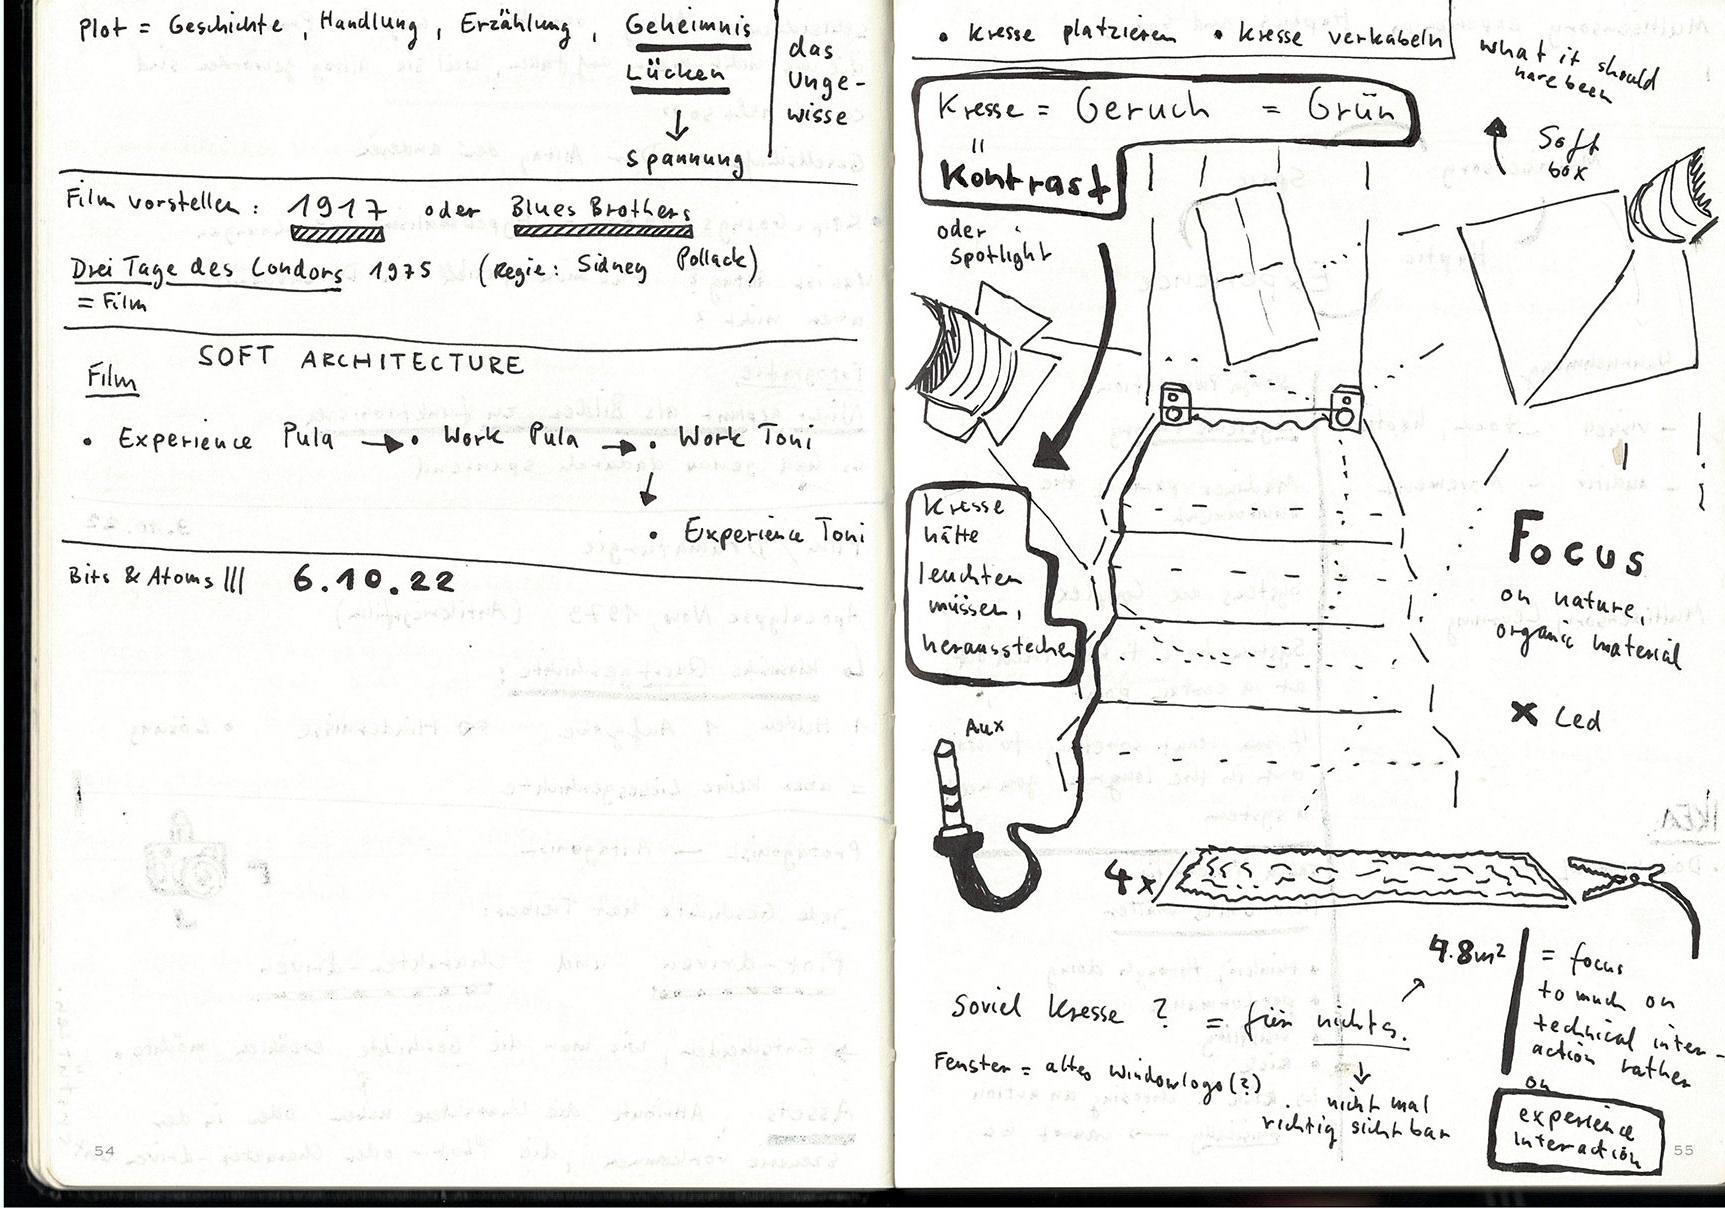 Plot = Geschichte, Handlung, Erzählung, Geheimnis
Lücken
↓
Spannung
das
Unge-
wisse
Film vorstellen: 1917 oder Blues Brothers
Drei Tage des Condors 1975 (Regie: Sidney Pollack)
= Film
SOFT ARCHITECTURE
Film
• Experience Pula → • Work Pula → • Work Toni
↓
• Experience Toni
Bits & Atoms III 6.10.22
54
• Kresse platzieren • Kresse verkabeln
Kresse = Geruch = Grün
"
Kontrast
oder
Spotlight
what it should
have been
Soft
box
Kresse
hätte
leuchten
müssen,
herausstechen
Focus
on nature,
organic material
x Led
Aux
4x
4.8m²
Soviel Kresse? = für nichts.
↓
nicht mal
richtig sichtbar
Fenster = altes Windowlogo(?)
= focus
to much on
technical inter-
action rather
on
experience
interaction
55